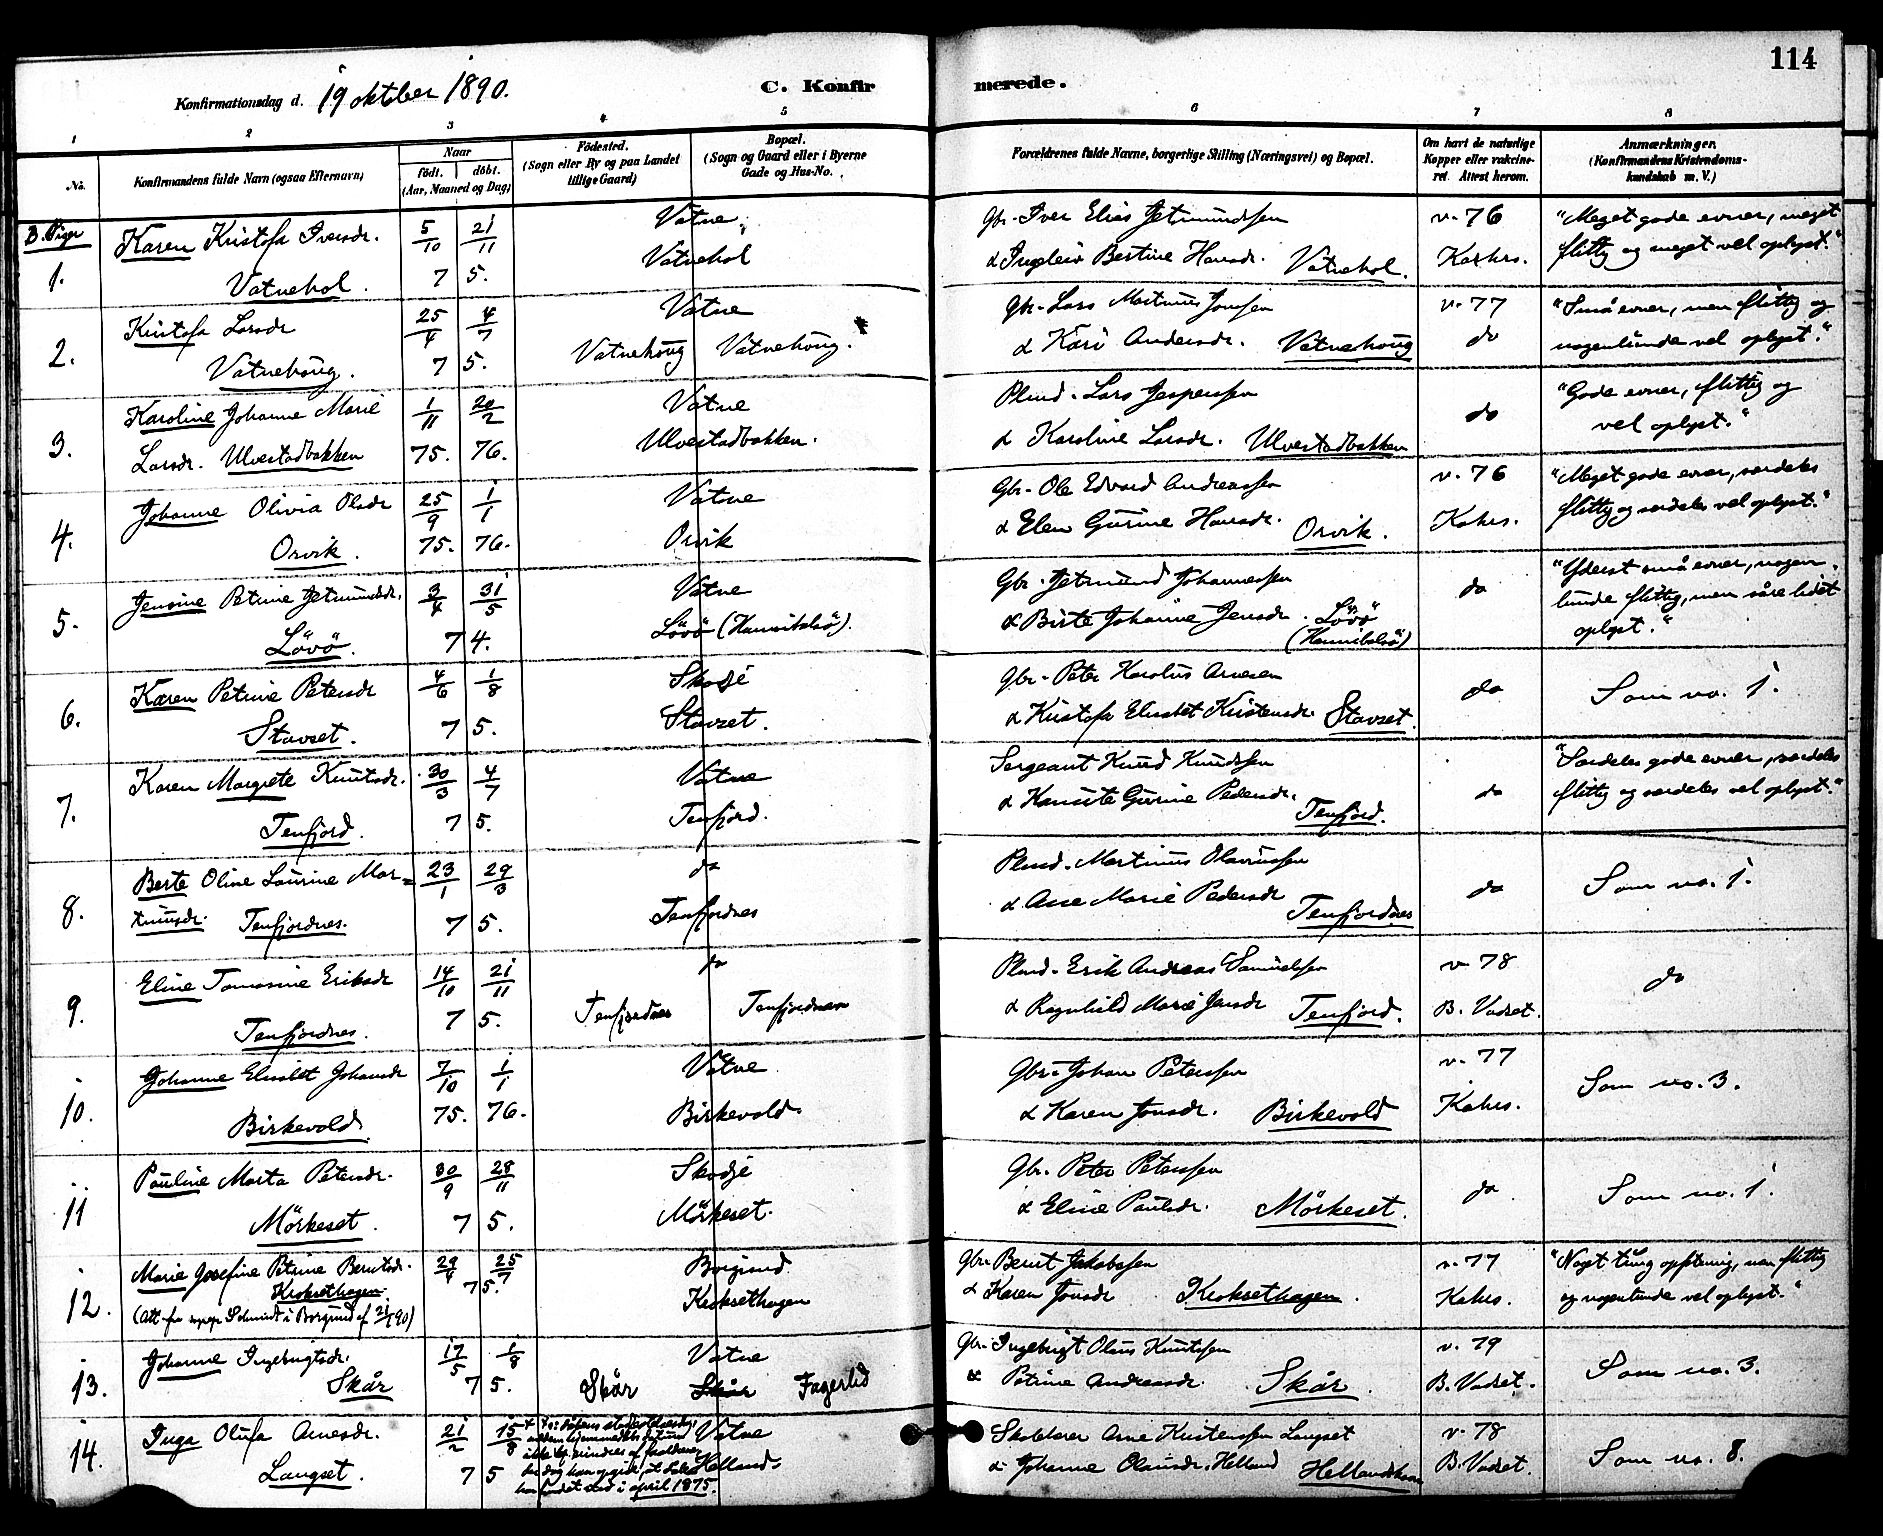 114
Konfirmationsdag d. 19 oktober 1890.
C. Konfirmerede.
1 2 3 4 5 6 7 8
No.
Konfirmandens fulde Navn (ogsaa Efternavn)
Naar
födt. döbt.
(Aar, Maaned og Dag)
Födested.
(Sogn eller By og paa Landet
tillige Gaard)
Bopæl.
(Sogn og Gaard eller i Byerne
Gade og Hus-No.
Forældrenes fulde Navne, borgerlige Stilling (Næringsvei) og Bopæl.
Om havt de naturlige
Kopper eller vaccine-
ret. Attest herom.
Anmærkninger.
(Konfirmandens Kristendoms-
kundskab m. V.)
B. Piger
1. Karen Kristofa Iversdr. 5/10 21/11 Vatne
Vatnehol. 75. Vatnehol
Gbr. Iver Elias Jetmundsen v. 76
& Ingeleiv Bertine Hansdr. Vatnehol. Kahrs.
"Meget gode evner, meget
flittig og meget vel oplyst."
2. Kristofa Larsdr 25/4 4/7 Vatne
Vatnehoug. 75. Vatnehoug Vatnehoug.
Gbr. Lars Martinus Jonsen v. 77
& Kari Andersdr. Vatnehoug do
"Små evner, men flittig og
nogenlunde vel oplyst."
3. Karoline Johanne Marie 1/11 20/2 Vatne
Larsdr. Ulvestadbakken 75. 76. Ulvestadbakken.
Plmd. Lars Jespersen do
& Karoline Larsdr. Ulvestadbakken
"Gode evner, flittig og
vel oplyst."
4. Johanne Olivia Olsdr 25/9 1/1 Vatne
Orvik. 75. 76. Orvik
Gbr. Ole Edvard Andreassen v. 76
& Elen Gurine Hansdr. Orvik. Kahrs.
"Meget gode evner, særdeles
flittig og særdeles vel oplyst."
5. Jensine Petrine Jetmundsdr. 3/4 31/5 Vatne
Lövö. 74. Lövö (Hannibalsö).
Gbr. Jetmund Johannessen do
& Birte Johanne Jensdr. Lövö
(Hannibalsö)
"Yderst små evner, nogen-
lunde flittig, men såre lidet
oplyst."
6. Karen Petrine Petersdr 4/6 1/8 Skodje
Stavset. 75. Stavset.
Gbr. Peter Karolus Arnesen do
& Kristofa Elisabet Kristensdr. Stavset.
Som no. 1.
7. Karen Margrete Knutsdr. 30/3 4/7 Vatne
Tenfjord. 75. Tenfjord.
Sergeant Knud Knudsen
& Gurine Pedersdr. Tenfjord. do
"Særdeles gode evner, særdeles
flittig og særdeles vel oplyst."
8. Berte Oline Laurine Mar= 23/1 29/3 do
tinusdr. Tenfjordnes. 75. Tenfjordnes
Plmd. Martinus Olavussen
& Ane Marie Pedersdr Tenfjordnes do
Som no. 1.
9. Eline Tomasine Eriksdr 14/10 21/11 do
Tenfjordnes. 75. Tenfjordnes Tenfjordnes
Plmd. Erik Andreas Samuelsen v. 78
& Ragnhild Marie Jensdr Tenfjord. B. Vadset.
do
10. Johanne Elisabet Johansdr 7/10 1/1 Vatne
Birkevold. 75. 76. Birkevold
Gbr. Johan Petersen v. 77
& Karen Jonsdr. Birkevold Kahrs.
Som no. 3.
11 Pauline Marta Petersdr. 30/9 28/11 Skodje
Mörkeset. 75. Mörkeset.
Gbr. Peter Petersen
& Eline Paulsdr. Mörkeset. do
Som no. 1.
12. Marie Josefine Petrine Berntsdr. 29/4 25/7 Borgund
Kroksethagen. 75. Kroksethagen
(Att. fra sogepr. Schmidt i Borgund af 90)
Gbr. Bernt Jakobsen v. 77
& Karen Jonsdr Kroksethagen. Kahrs.
"Noget tung opfatning, men flittig
og nogenlunde vel oplyst."
13. Johanne Ingebrigtsdr. 17/5 1/8 Vatne
Skår 75. Skår Skår Fagerlid
Gbr. Ingebrigt Olaus Knutsen v. 79
& Petrine Andreasdr Skår. B. Vadset.
Som no. 3.
14. Inga Olufa Arnesdr. 21/2 15/8 Vatne
Langset. 75 Helland
har fundet sted i april 1875.
Skolelærer Arne Kristensen Langset v. 78
& Johanne Olausdr. Helland B. Vadset.
Som no. 8.